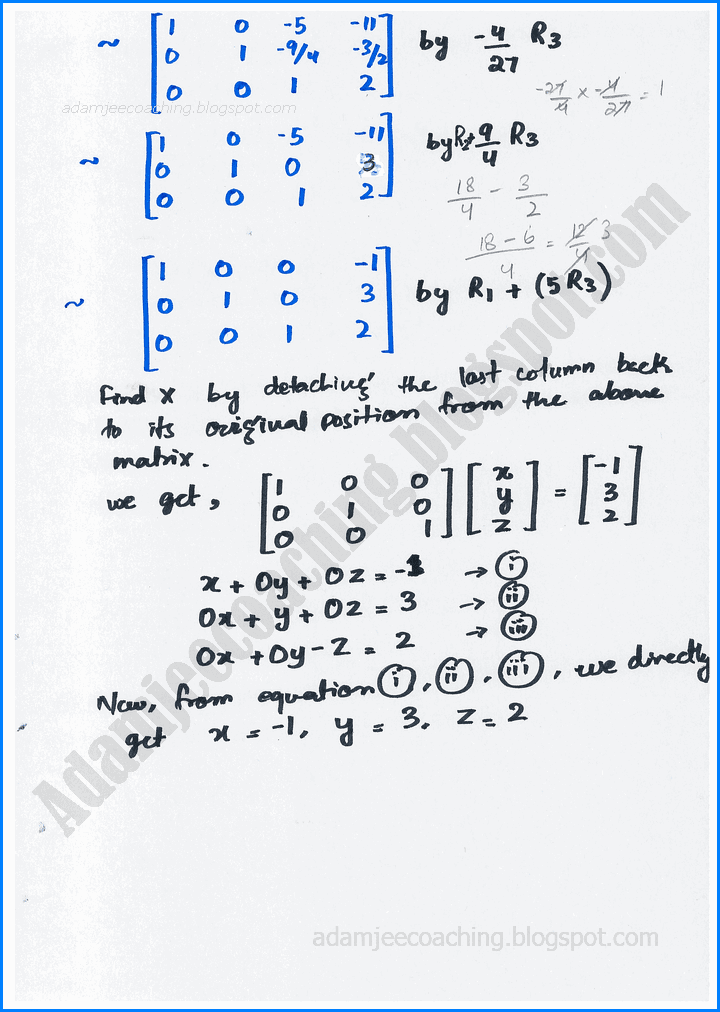 ~ [1 0 -5 -11
0 1 -9/4 -3/2
0 0 1 2] by -4/27 R3
adamjeecoaching.blogspot.com
-27/4 x -4/27 = 1
~ [1 0 -5 -11
0 1 0 3
0 0 1 2] by R2+ 9/4 R3
18/4 - 3/2
18-6/4 = 12/4 3
~ [1 0 0 -1
0 1 0 3
0 0 1 2] by R1 + (5R3)
Find X by detaching the last column back
to its original position from the above
matrix.
we get, [1 0 0
0 1 0
0 0 1] [x
y
z] = [-1
3
2]
x + 0y + 0z = -1 → (i)
0x + y + 0z = 3 → (ii)
0x + 0y - z = 2 → (iii)
Now, from equation (i), (ii), (iii), we directly
get x = -1, y = 3, z = 2
Adamjeecoaching.blogspot.com
adamjeecoaching.blogspot.com